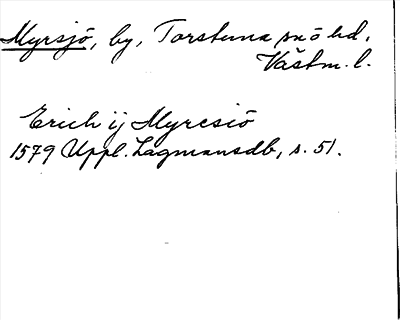 Myrsjö, by, Torstuna sn o hd,
Västm. l.
Erich ij Myresiö
1579 Uppl. Lagmansdb, s. 51.